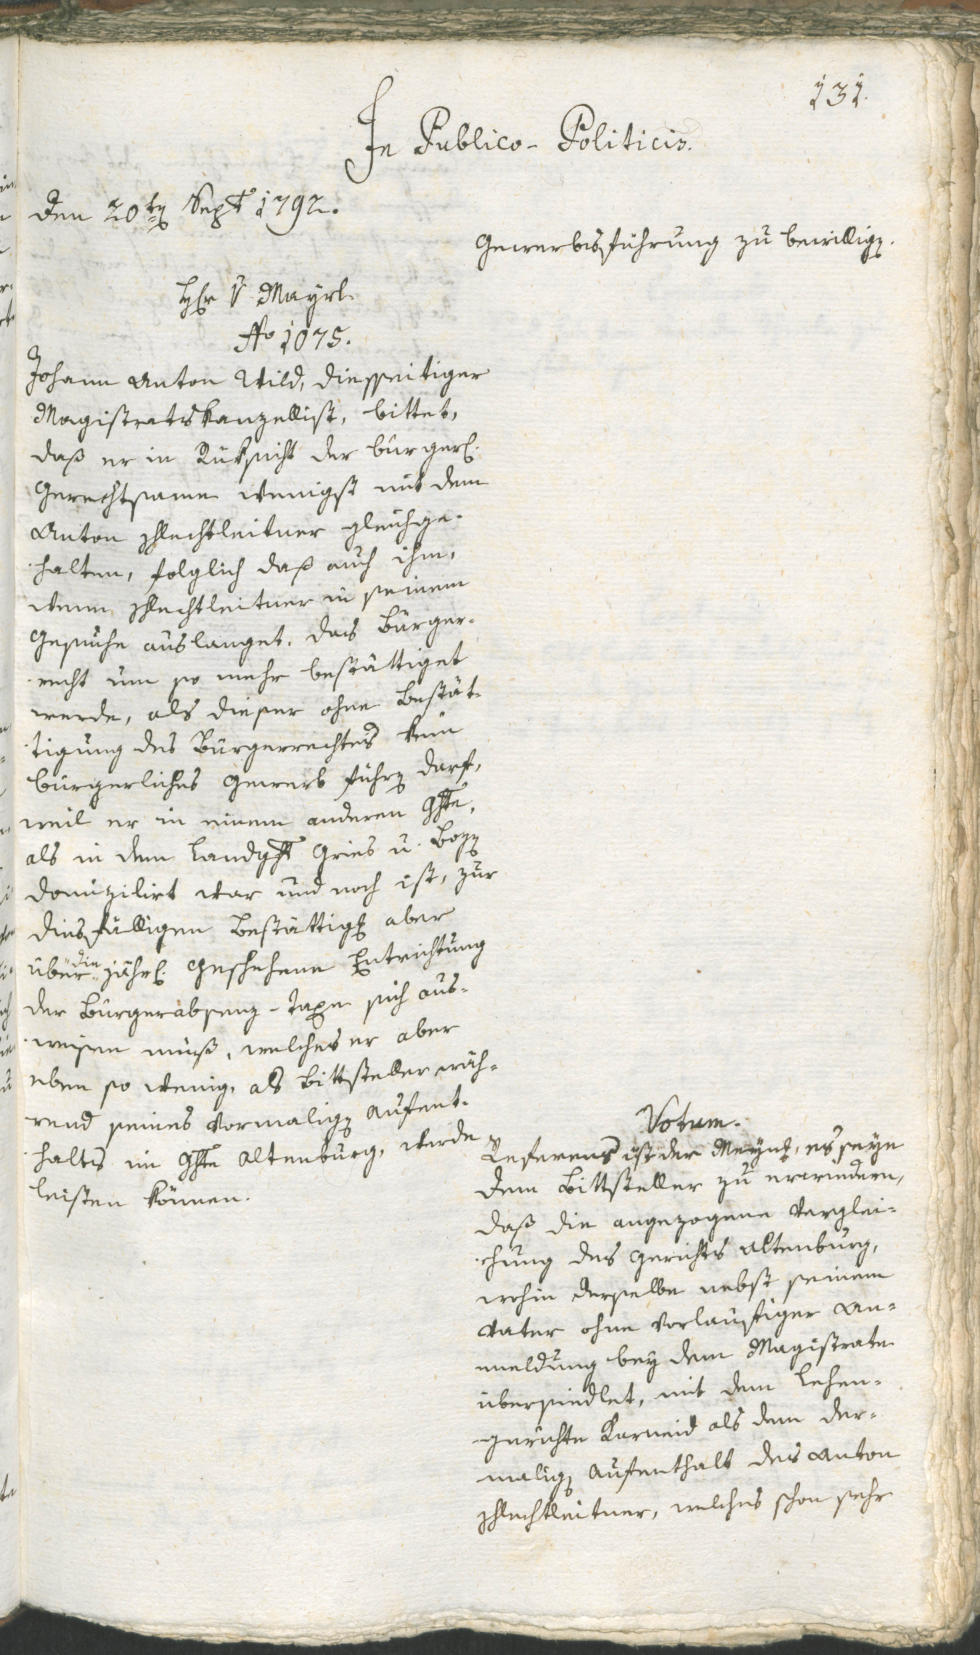 131.
In Publico-Politicis.
Den 20ten Sept 1792.
Gewerbsführung zu bewillig.
H v Mayrl.
No 1075.
Johann Anton Wild, diesseitiger
Magistratskanzellist, bittet,
daß er in Rüksicht der bürgerl.
Gerechtsame wenigst mit dem
Anton Schlechtleitner gleichge-
halten, folglich daß auch ihm,
wenn Schlechtleitner in seinem
Gesuche auslanget, das Bürger-
recht um so mehr bestättiget
werde, als dieser ohne Bestät-
tigung des Bürgerrechtes kein
bürgerliches Gewerb führen darf,
weil er in einem anderen Ghte,
als in dem Landght Gries u. Bozen
domizilirt war und noch ist, zur
diesfälligen Bestättig aber
über die jährl. geschehene Entrichtung
der Bürgerabsenz-Taxe sich aus-
weisen muß, welches er aber
eben so wenig, als Bittsteller wäh-
rend seines vormaligen Aufent-
halts im Ghte Altenburg, werde
leisten können.
Votum.
Referens ist der Meynung, es seye
dem Bittsteller zu erwiedern,
daß die angezogene Verglei-
chung des Gerichts Altenburg,
wohin derselbe nebst seinem
Vater ohne vorläufiger An-
meldung bey dem Magistrate
übersiedlet, mit dem Lehen-
gerichte Karneid als dem der-
maligen Aufenthalt des Anton
Schlechtleitner, welches schon sehr